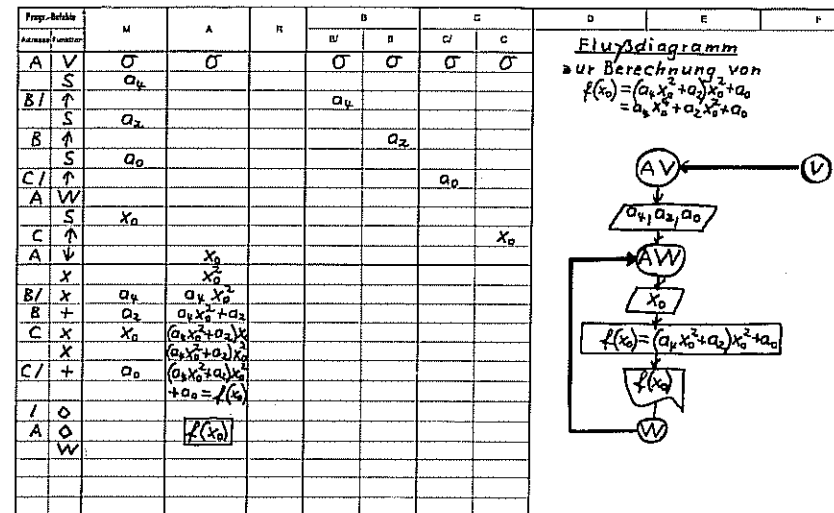 Progr.-Befehle M A R B C D E F
Adresse Funktion B/ B C/ C
A V σ σ σ σ σ σ
S a₄
B/ ↑ a₄
S a₂
B ↑ a₂
S a₀
C/ ↑ a₀
A W
S x₀
C ↑ x₀
A ↓ x₀
x x₀²
B/ x a₄ a₄x₀²
B + a₂ a₄x₀²+a₂
C x x₀ (a₄x₀²+a₂)x₀
x (a₄x₀²+a₂)x₀²
C/ + a₀ (a₄x₀²+a₂)x₀²
+a₀=f(x₀)
/ ◇
A ◇ f(x₀)
W
Flußdiagramm
zur Berechnung von
f(x₀)=(a₄x₀²+a₂)x₀²+a₀
=a₄x₀⁴+a₂x₀²+a₀
AV V
a₄, a₂, a₀
AW
x₀
f(x₀)=(a₄x₀²+a₂)x₀²+a₀
f(x₀)
W